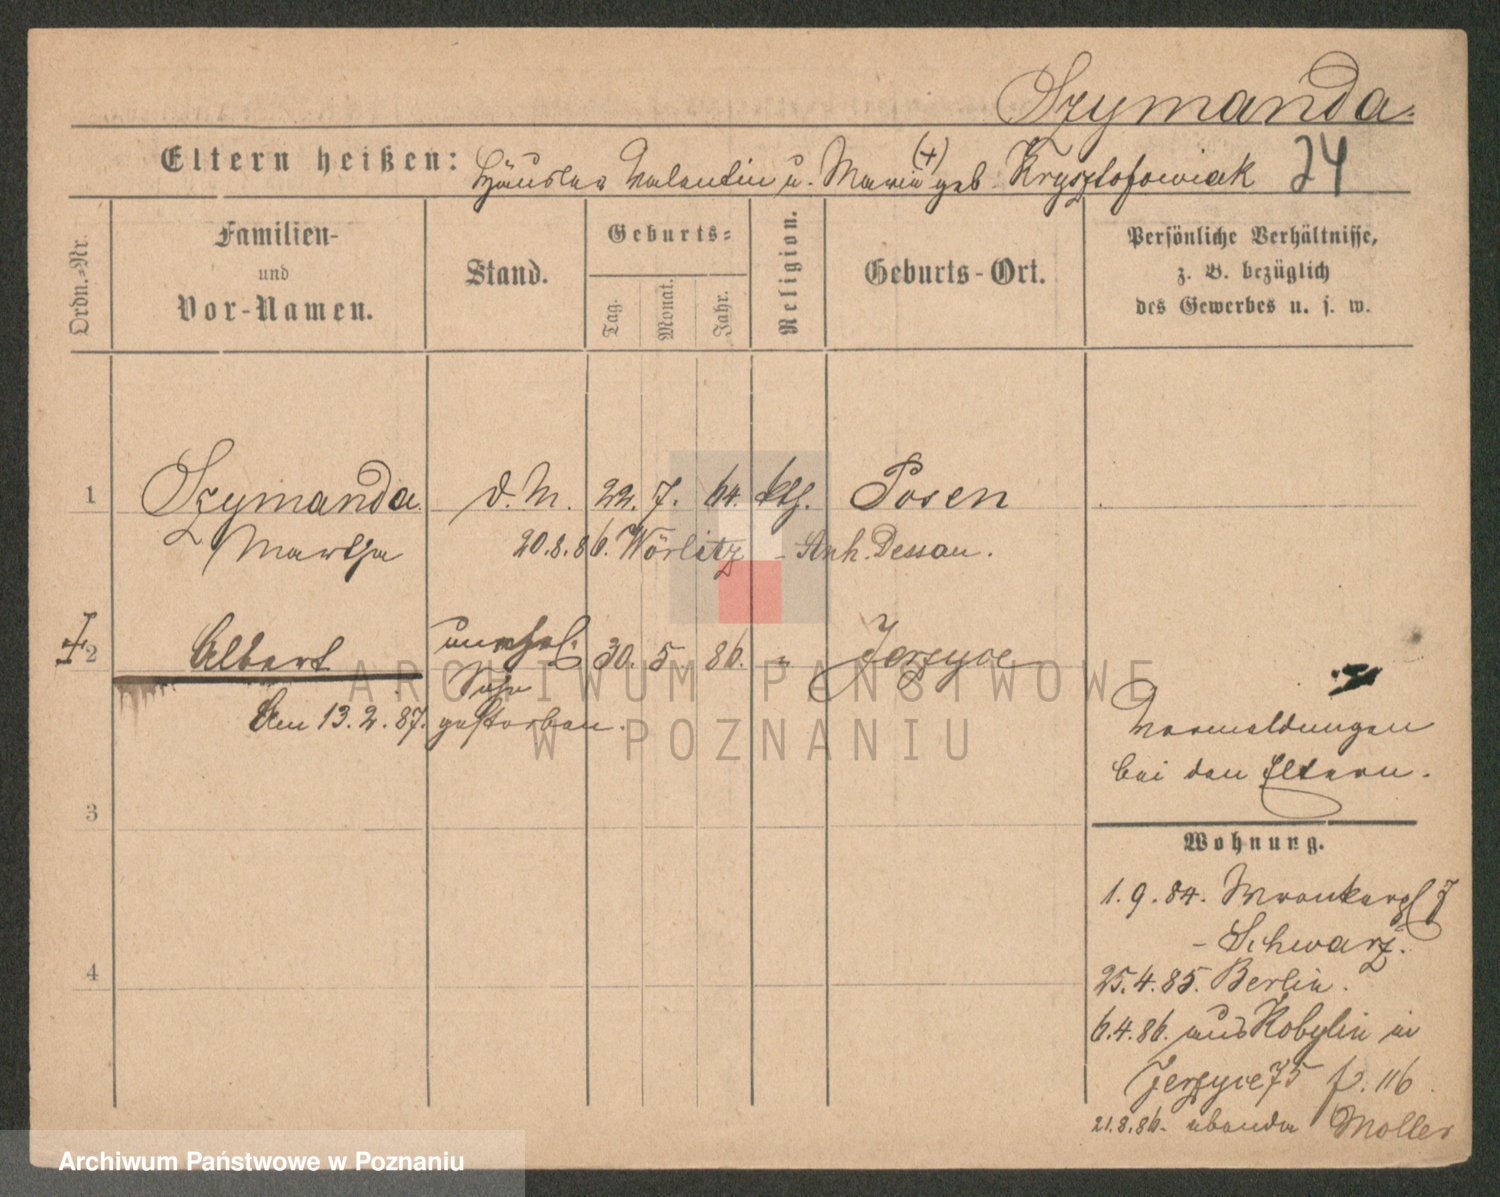 Szymanda.
Eltern heißen: Häusler Valentin u. Maria (+) geb. Krysztofowiak 24
Ordn.=Nr.
Familien- und Vor-Namen.
Stand.
Geburts=
Tag. Monat. Jahr.
Religion.
Geburts-Ort.
Persönliche Verhältnisse,
z. B. bezüglich
des Gewerbes u. s. w.
1 Szymanda d. M. 22. 7. 64. kth. Posen
Martha 20.8.86. Wörlitz - Anh. Dessau.
2 Albert unehel. 30. 5 86. " Jerzyce
Sohn
Am 13.2.87. gestorben.
ARCHIWUM PAŃSTWOWE
W POZNANIU
Vermeldungen
bei den Eltern.
3
Wohnung.
1.9.84. Wronkerpl 7
- Schwarz.
4
25.4.85. Berlin.
6.4.86. aus Kobylin in
Jerzyce 75 f. 116
21.8.86. ebenda Moller
Archiwum Państwowe w Poznaniu